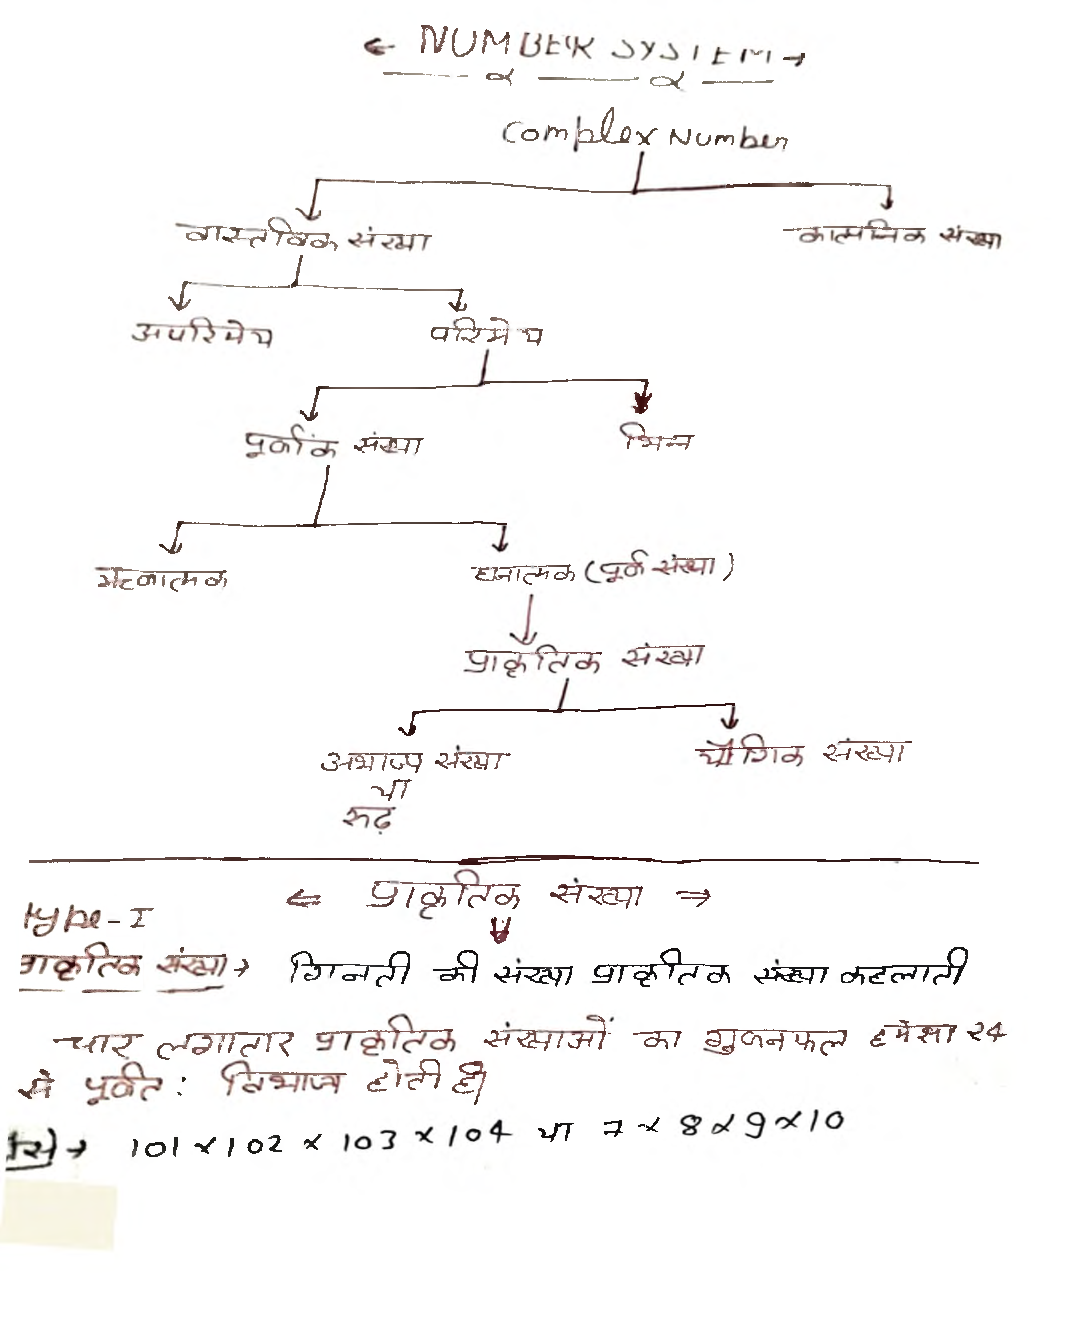 ← NUMBER SYSTEM →
Complex Number
वास्तविक संख्या
काल्पनिक संख्या
अपरिमेय
परिमेय
पूर्णांक संख्या
भिन्न
ऋणात्मक
धनात्मक (पूर्ण संख्या)
प्राकृतिक संख्या
अभाज्य संख्या
या
रूढ़
यौगिक संख्या
⇐ प्राकृतिक संख्या ⇒
Type-I
प्राकृतिक संख्या → गिनती की संख्या प्राकृतिक संख्या कहलाती
चार लगातार प्राकृतिक संख्याओं का गुणनफल हमेशा 24
से पूर्णत: विभाज्य होती है।
101 × 102 × 103 × 104 या 7 × 8 × 9 × 10